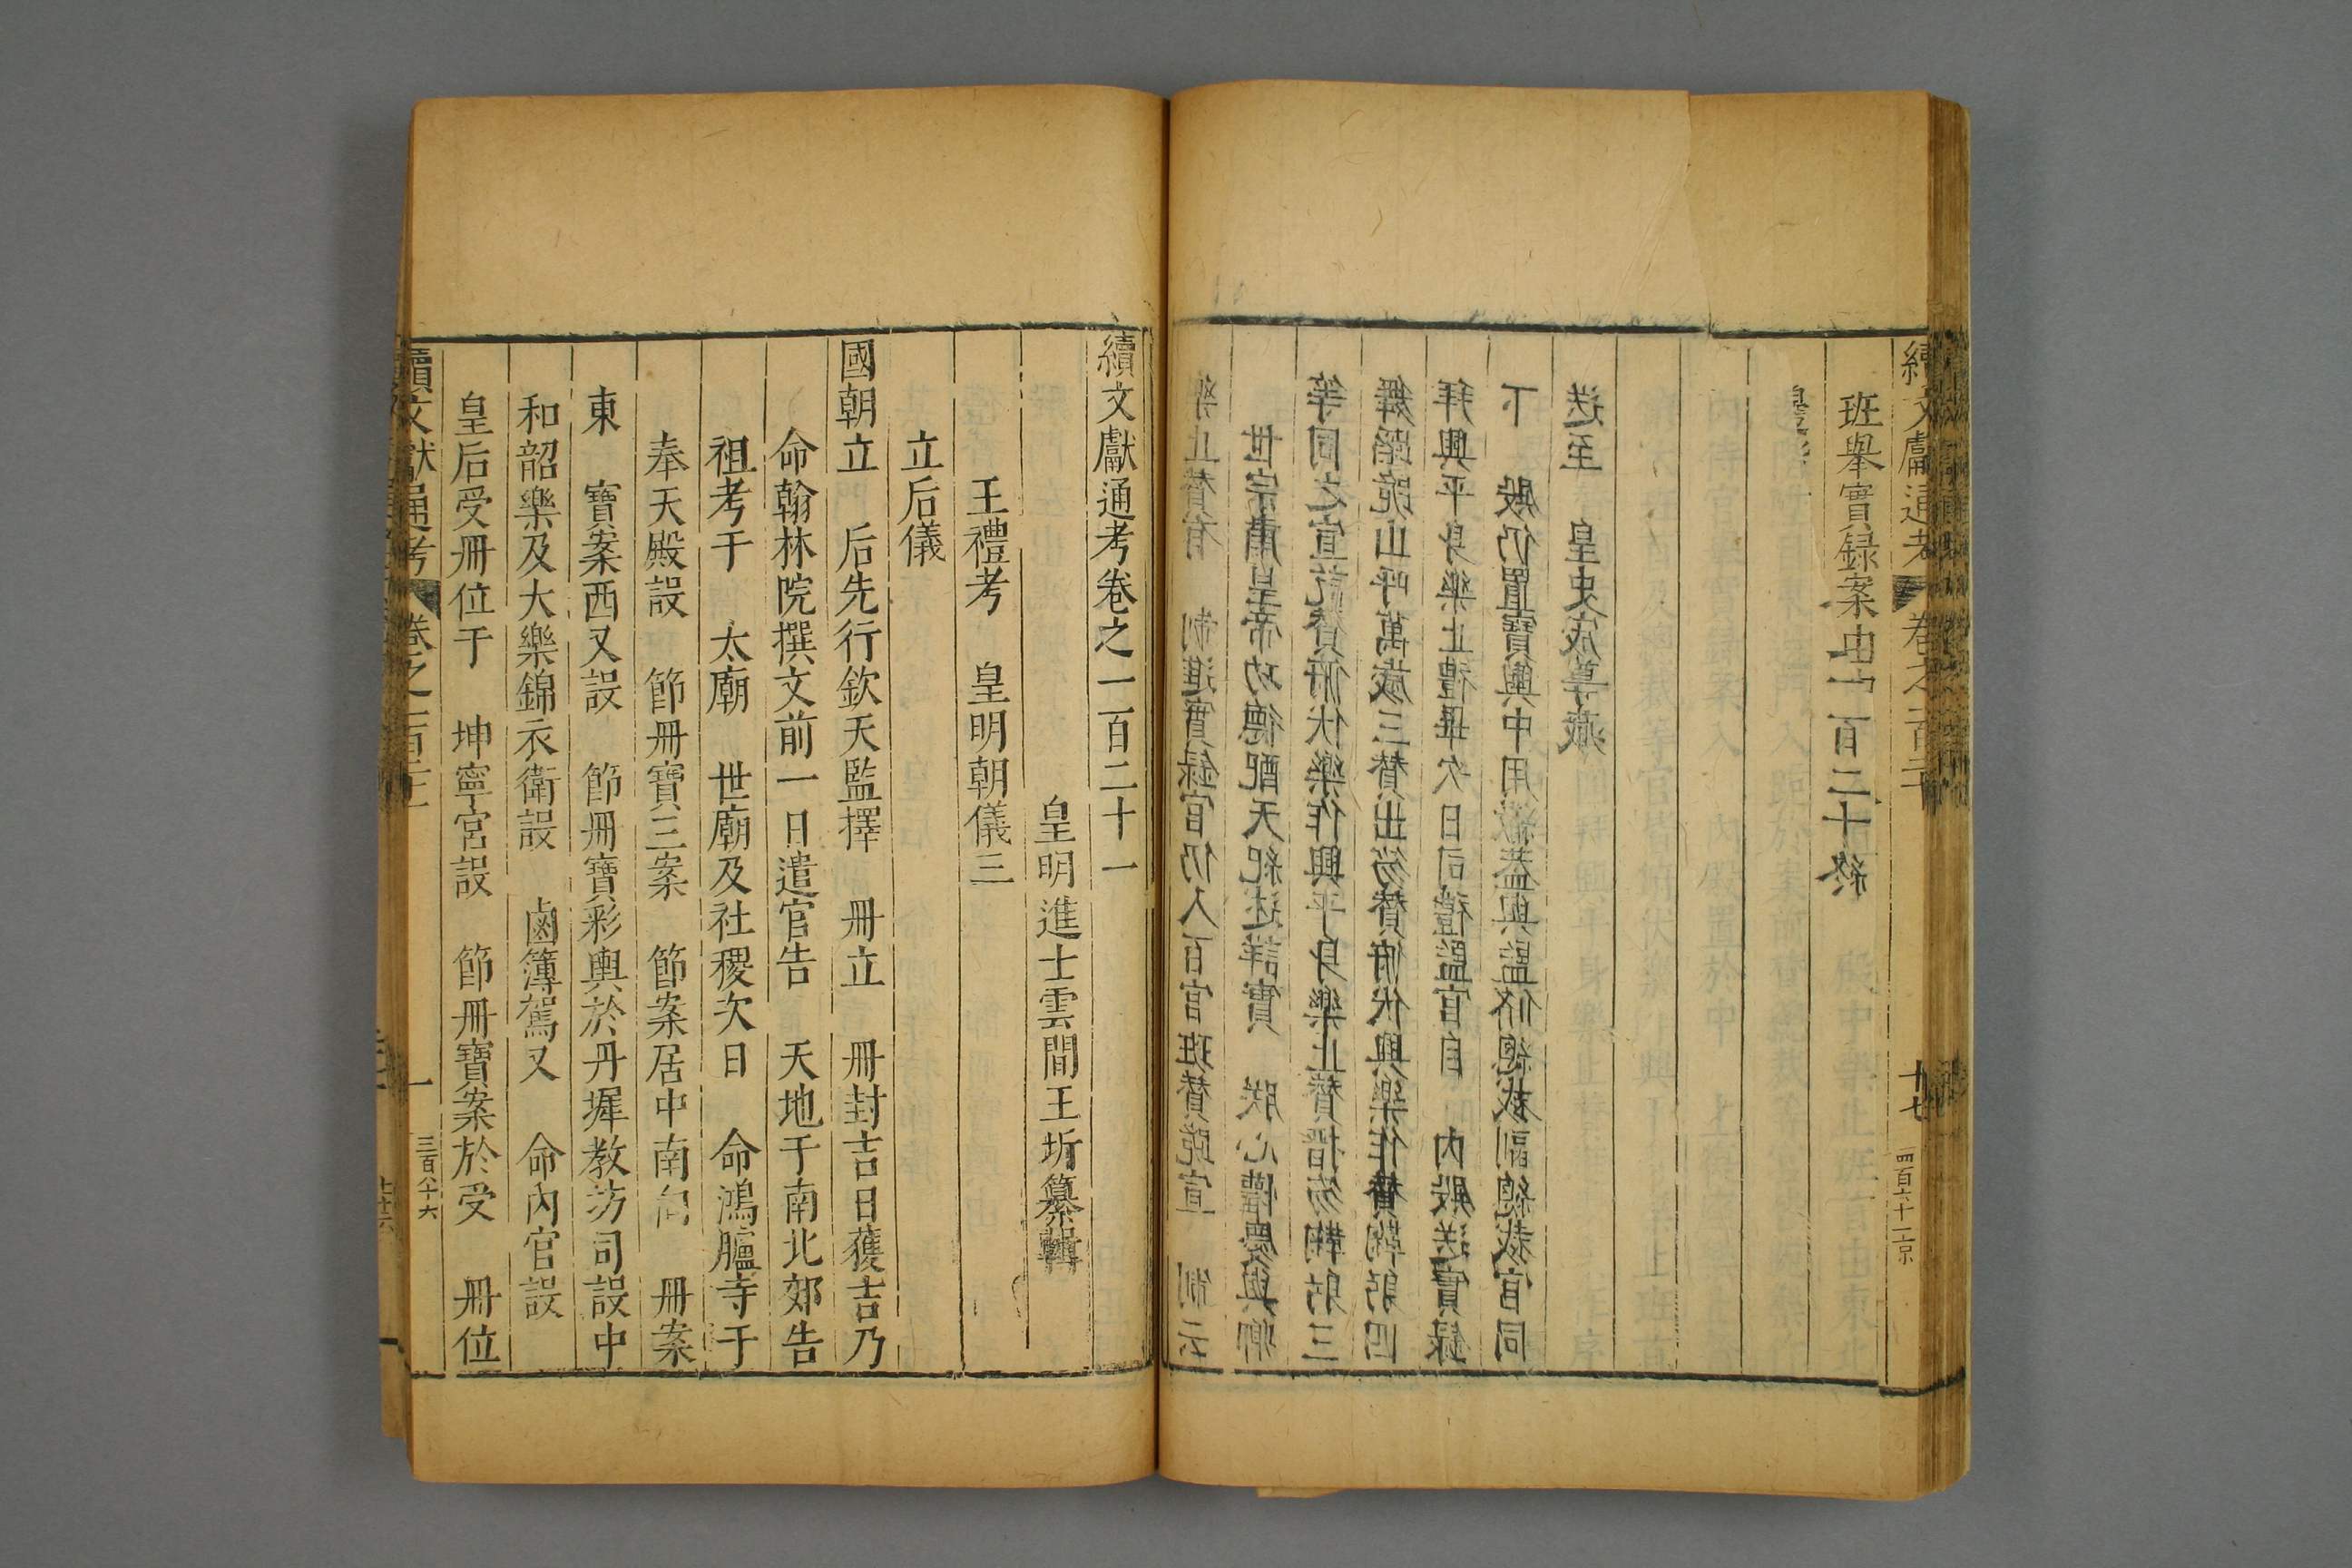 續文獻通考 卷之百二十 十七
班舉實録案由
一百二十終
樂止贊有 制進實録官仍入百官班贊跪宣 制云
世宗肅皇帝功德配天紀述詳實 朕心懽慶與卿
等同之宣訖贊俯伏樂作興平身樂止贊搢笏鞠躬三
舞蹈跪山呼萬歲三贊出笏贊俯伏興樂作贊鞠躬四
拜興平身樂止禮畢次日司禮監官自 內殿送實録
下 殿仍置寶輿中用繖蓋與監修總裁副總裁官同
送至 皇史宬尊藏
續文獻通考卷之一百二十一
皇明進士雲間王圻纂輯
王禮考 皇明朝儀三
立后儀
國朝立 后先行欽天監擇 冊立 冊封吉日獲吉乃
命翰林院撰文前一日遣官告 天地于南北郊告
祖考于 太廟 世廟及社稷次日 命鴻臚寺于
奉天殿設 節冊寶三案 節案居中南向 冊案
東 寶案西又設 節冊寶彩輿於丹墀教坊司設中
和韶樂及大樂錦衣衛設 鹵簿駕又 命內官設
皇后受冊位于 坤寧宮設 節冊寶案於受 冊位
續文獻通考 卷之一百二十一 一 三百八十六